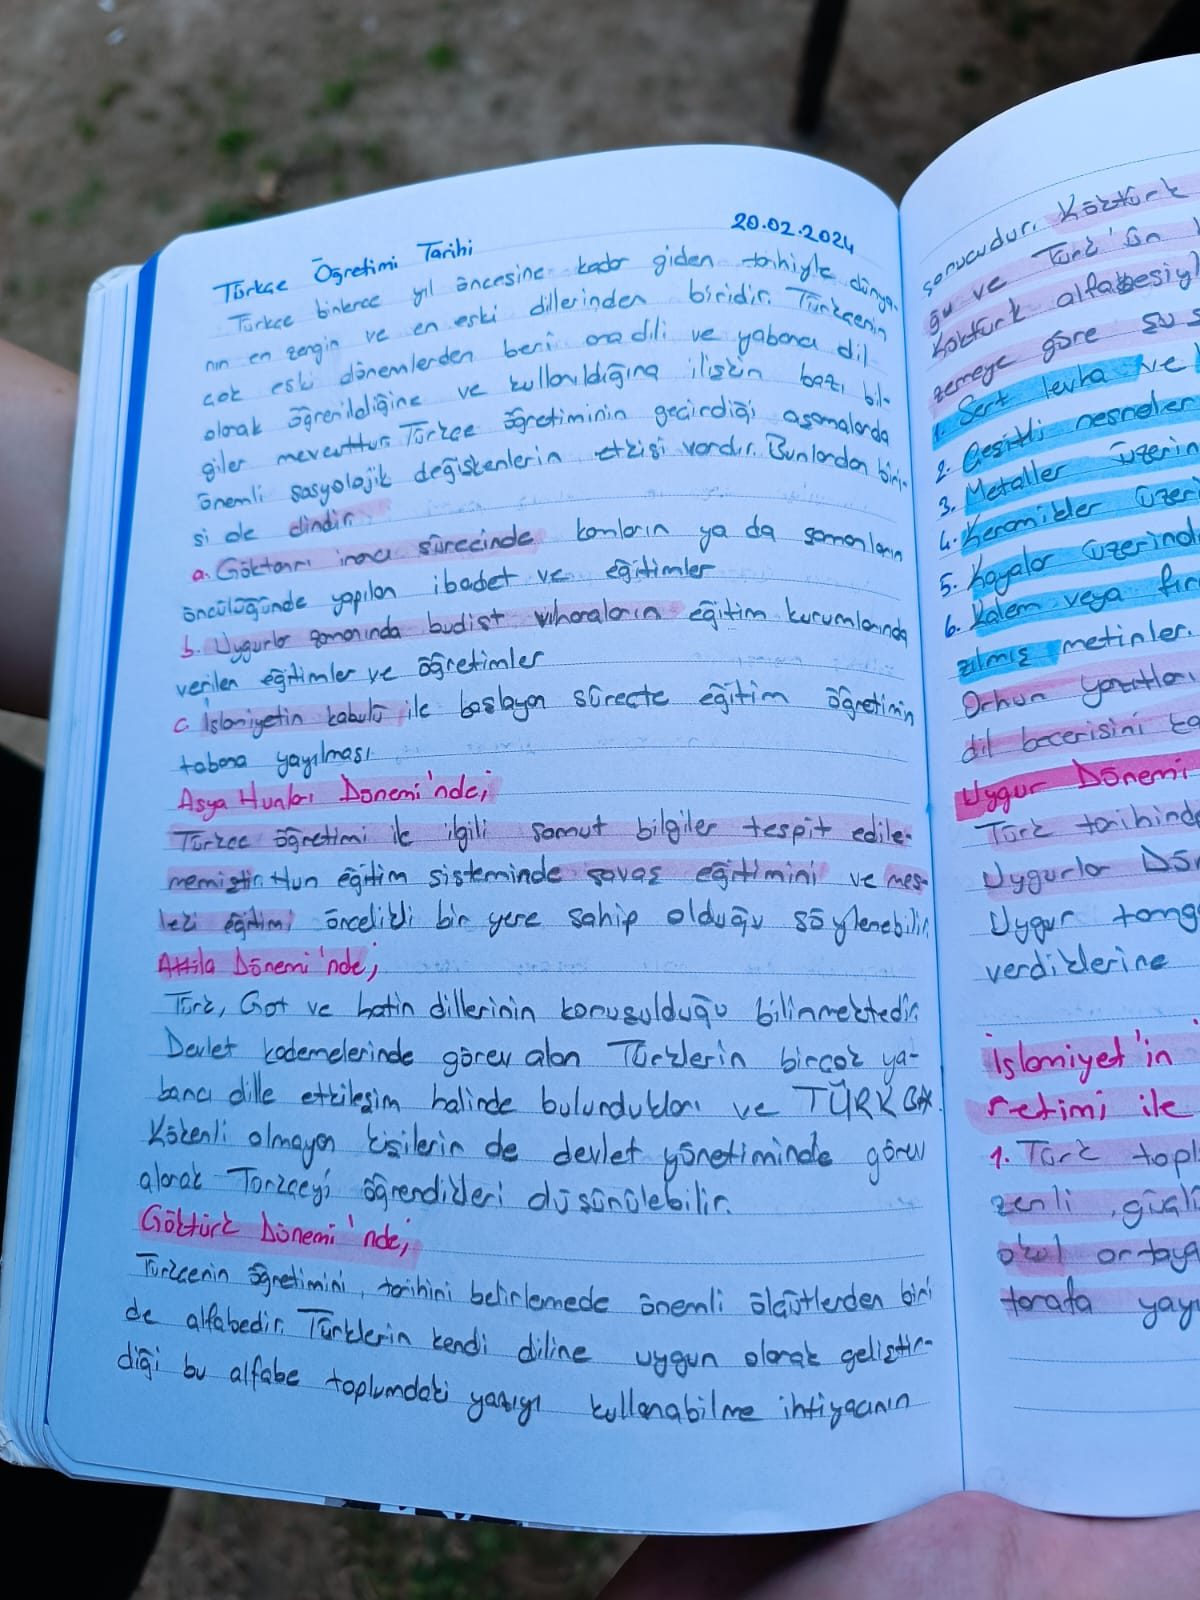 20.02.2024
Türkçe Öğretimi Tarihi
Türkçe binlerce yıl öncesine kadar giden tarihiyle dünya-
nın en zengin ve en eski dillerinden biridir. Türkçenin
çok eski dönemlerden beri ana dili ve yabancı dil
olarak öğrenildiğine ve kullanıldığına ilişkin bazı bil-
giler mevcuttur. Türkçe öğretiminin geçirdiği aşamalarda
önemli sosyolojik değişkenlerin etkisi vardır. Bunlardan biri-
si de dindir.
a. Göktanrı inancı sürecinde kamların ya da şamanların
öncülüğünde yapılan ibadet ve eğitimler
b. Uygurlar zamanında budist viharaların eğitim kurumlarında
verilen eğitimler ve öğretimler
c. İslamiyetin kabulü ile başlayan süreçte eğitim öğretimin
tabana yayılması
Asya Hunları Dönemi'nde;
Türkçe öğretimi ile ilgili somut bilgiler tespit edile-
memiştir. Hun eğitim sisteminde savaş eğitimini ve mes-
leki eğitimi öncelikli bir yere sahip olduğu söylenebilir.
Attila Dönemi'nde;
Türk, Got ve Latin dillerinin konuşulduğu bilinmektedir.
Devlet kademelerinde görev alan Türklerin birçok ya-
bancı dille etkileşim halinde bulundukları ve TÜRK
Kökenli olmayan kişilerin de devlet yönetiminde görev
alarak Türkçeyi öğrendikleri düşünülebilir.
Göktürk Dönemi'nde;
Türkçenin öğretimini, tarihini belirlemede önemli ölçütlerden biri
de alfabedir. Türklerin kendi diline uygun olarak geliştir-
diği bu alfabe toplumdaki yazıyı kullanabilme ihtiyacının
sonucudur. Köktürk
ğu ve Türk'ün
Köktürk alfabesiyl
zemeye göre şu s
1. Sert levha ve
2. Çeşitli nesneler
3. Metaller üzerin
4. Keramikler üzeri
5. Kayalar üzerind
6. Kalem veya fır
zılmış metinler.
Orhun yazıtları
dil becerisini ka
Uygur Dönemi
Türk tarihinde
Uygurlar Dö
Uygur tamg
verdiklerine
İslamiyet'in
retimi ile
1. Türk topl
zenli, güçlü
okul ortaya
tarafa yay